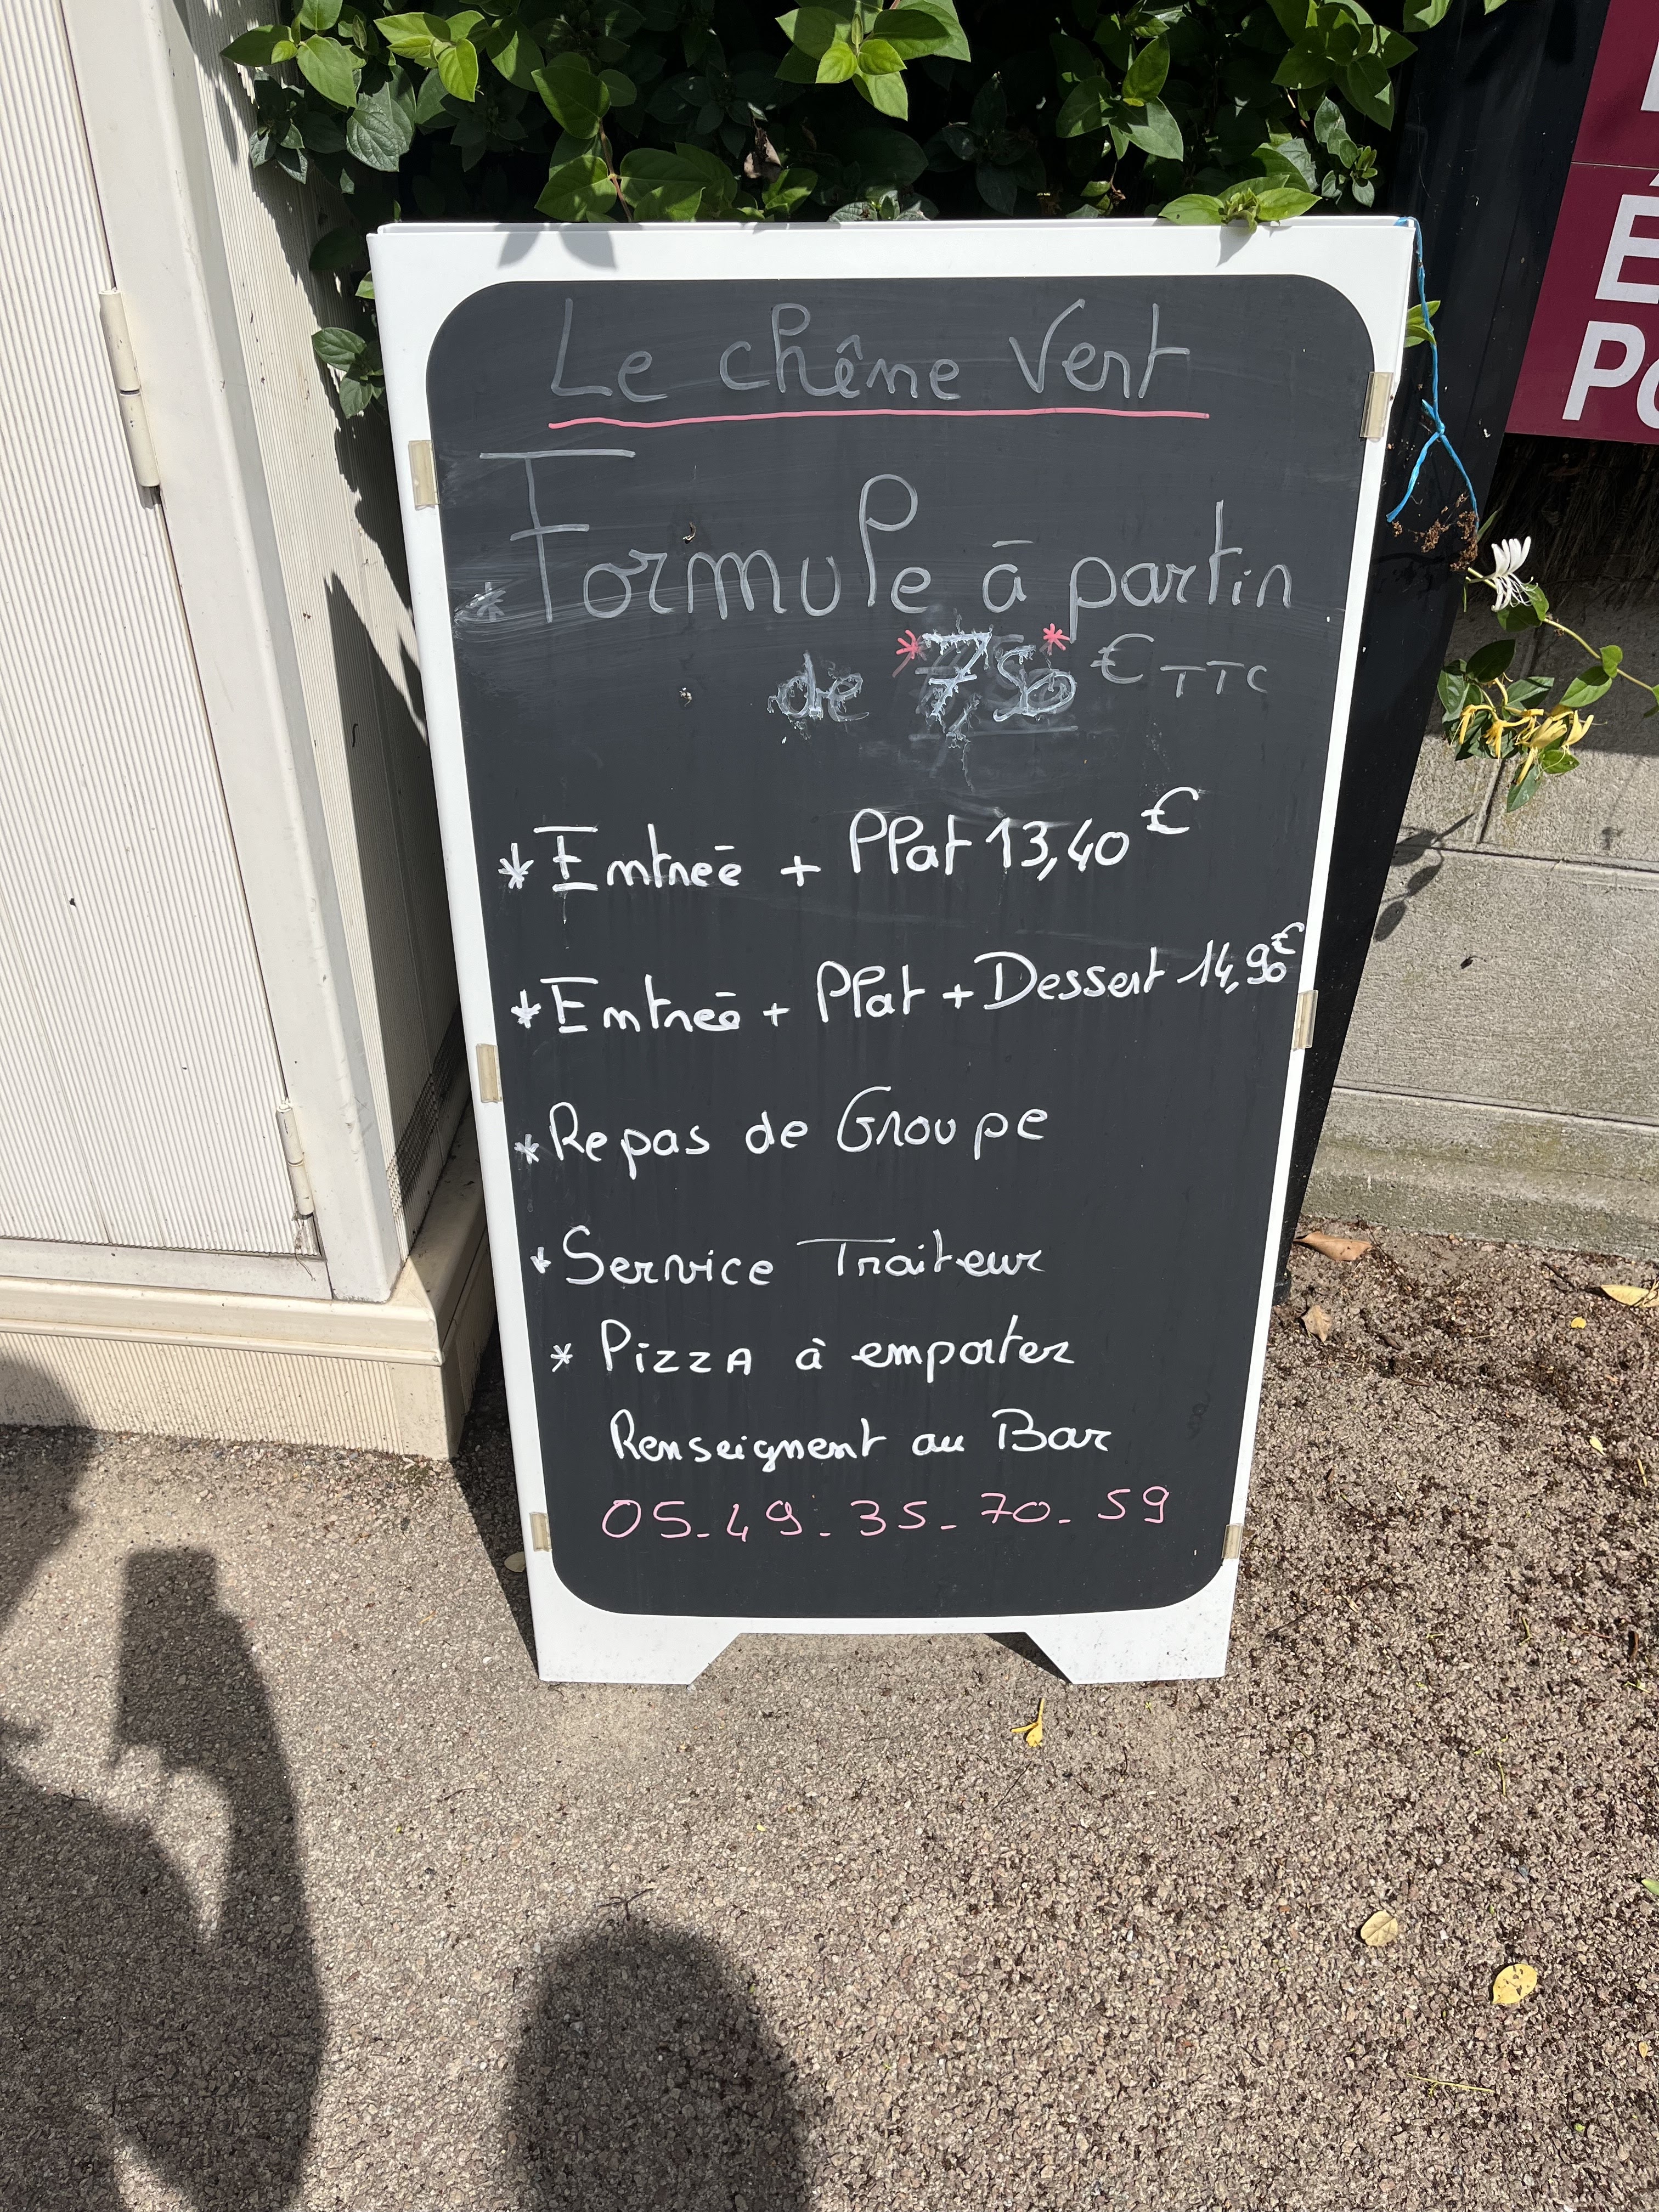 Le chêne Vert
* Formule à partir
de *7,50* € TTC
* Entrée + Plat 13,40€
* Entrée + Plat + Dessert 14,90€
* Repas de Groupe
* Service Traiteur
* PizzA à emporter
Renseignent au Bar
05-49-35-70-59
É